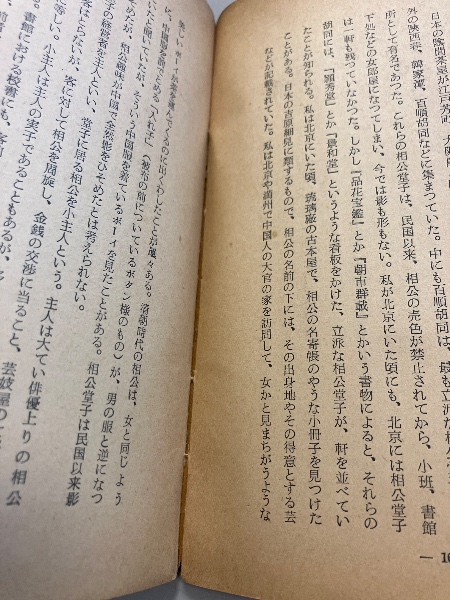 日本の陰間茶屋が江戸芳町、大阪
外の陜西巷、韓家潭、百順胡同などに集まつていた。中にも百順胡同は、最も立派な
所として有名であつた。これらの相公堂子は、民国以来、相公の売色が禁止されてから、小班、書館
下処などの女郎屋になつてしまい、今では影も形もない。私が北京にいた頃にも、北京には相公堂子
は一軒も残つていなかつた。しかし『品花宝鑑』とか『朝市群載』とかいう書物によると、それらの
胡同には、『穎秀堂』とか『景和堂』というような看板をかけた、立派な相公堂子が、軒を並べてい
たことが知られる。私は北京にいた頃、琉璃廠の古本屋で、相公の名寄帳のやうな小冊子を見つけた
ことがある。日本の吉原細見に類するもので、相公の名前の下には、その出身地やその得意とする芸
などが記載されていた。私は北京や満州で中国人の大官の家を訪問して、女かと見まちがうような
一 16
美しい
が茶を運んでくるのに出くわしたことが度々ある。清朝時代の相公は、女と同じよう
に、中国服を胸でとめる「入れ子」(被布の前についているボタン様のもの)が、男の服と逆になつ
ていたと聞いていたが、そういう中国服を着ているボーイを見たことがある。相公堂子は民国以来影
たが、相公趣味が中国で全然影をひそめたとは考えられない。
子の経営者を主人といい、堂子に居る相公を小主人という。主人は大てい俳優上りの相公
客はとらないが、客に対して相公を周旋し、金銭の交渉に当ること、芸妓屋の
等しい。小主人は主人の実子であることもあるが、多
書館における娘